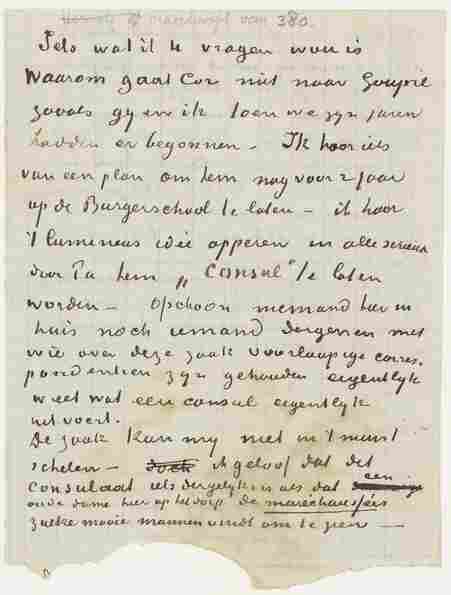 van 380.
Iets wat ik U vragen wou is
Waarom gaat Cor niet naar Goupil
zooals gy en ik toen we zyn jaren
hadden er begonnen – Ik hoor iets
van een plan om hem nog voor 2 jaar
op de Burgerschool te laten – ik hoor
't lumineus idée opperen in alle serieux
door Pa hem „Consul" te laten
worden – Ofschoon niemand hier in
huis noch iemand dergenen met
wie over deze zaak voorloopige corres,
pondentien zyn gehouden eigentlyk
weet wat een consul eigentlyk
uitvoert.
De zaak kan my niet in 't minst
schelen – doch ik geloof dat dit
Consulaat iets dergelyks is als dat een
oude dame hier op het dorp de maréchaussées
zulke mooie mannen vindt om te zien —